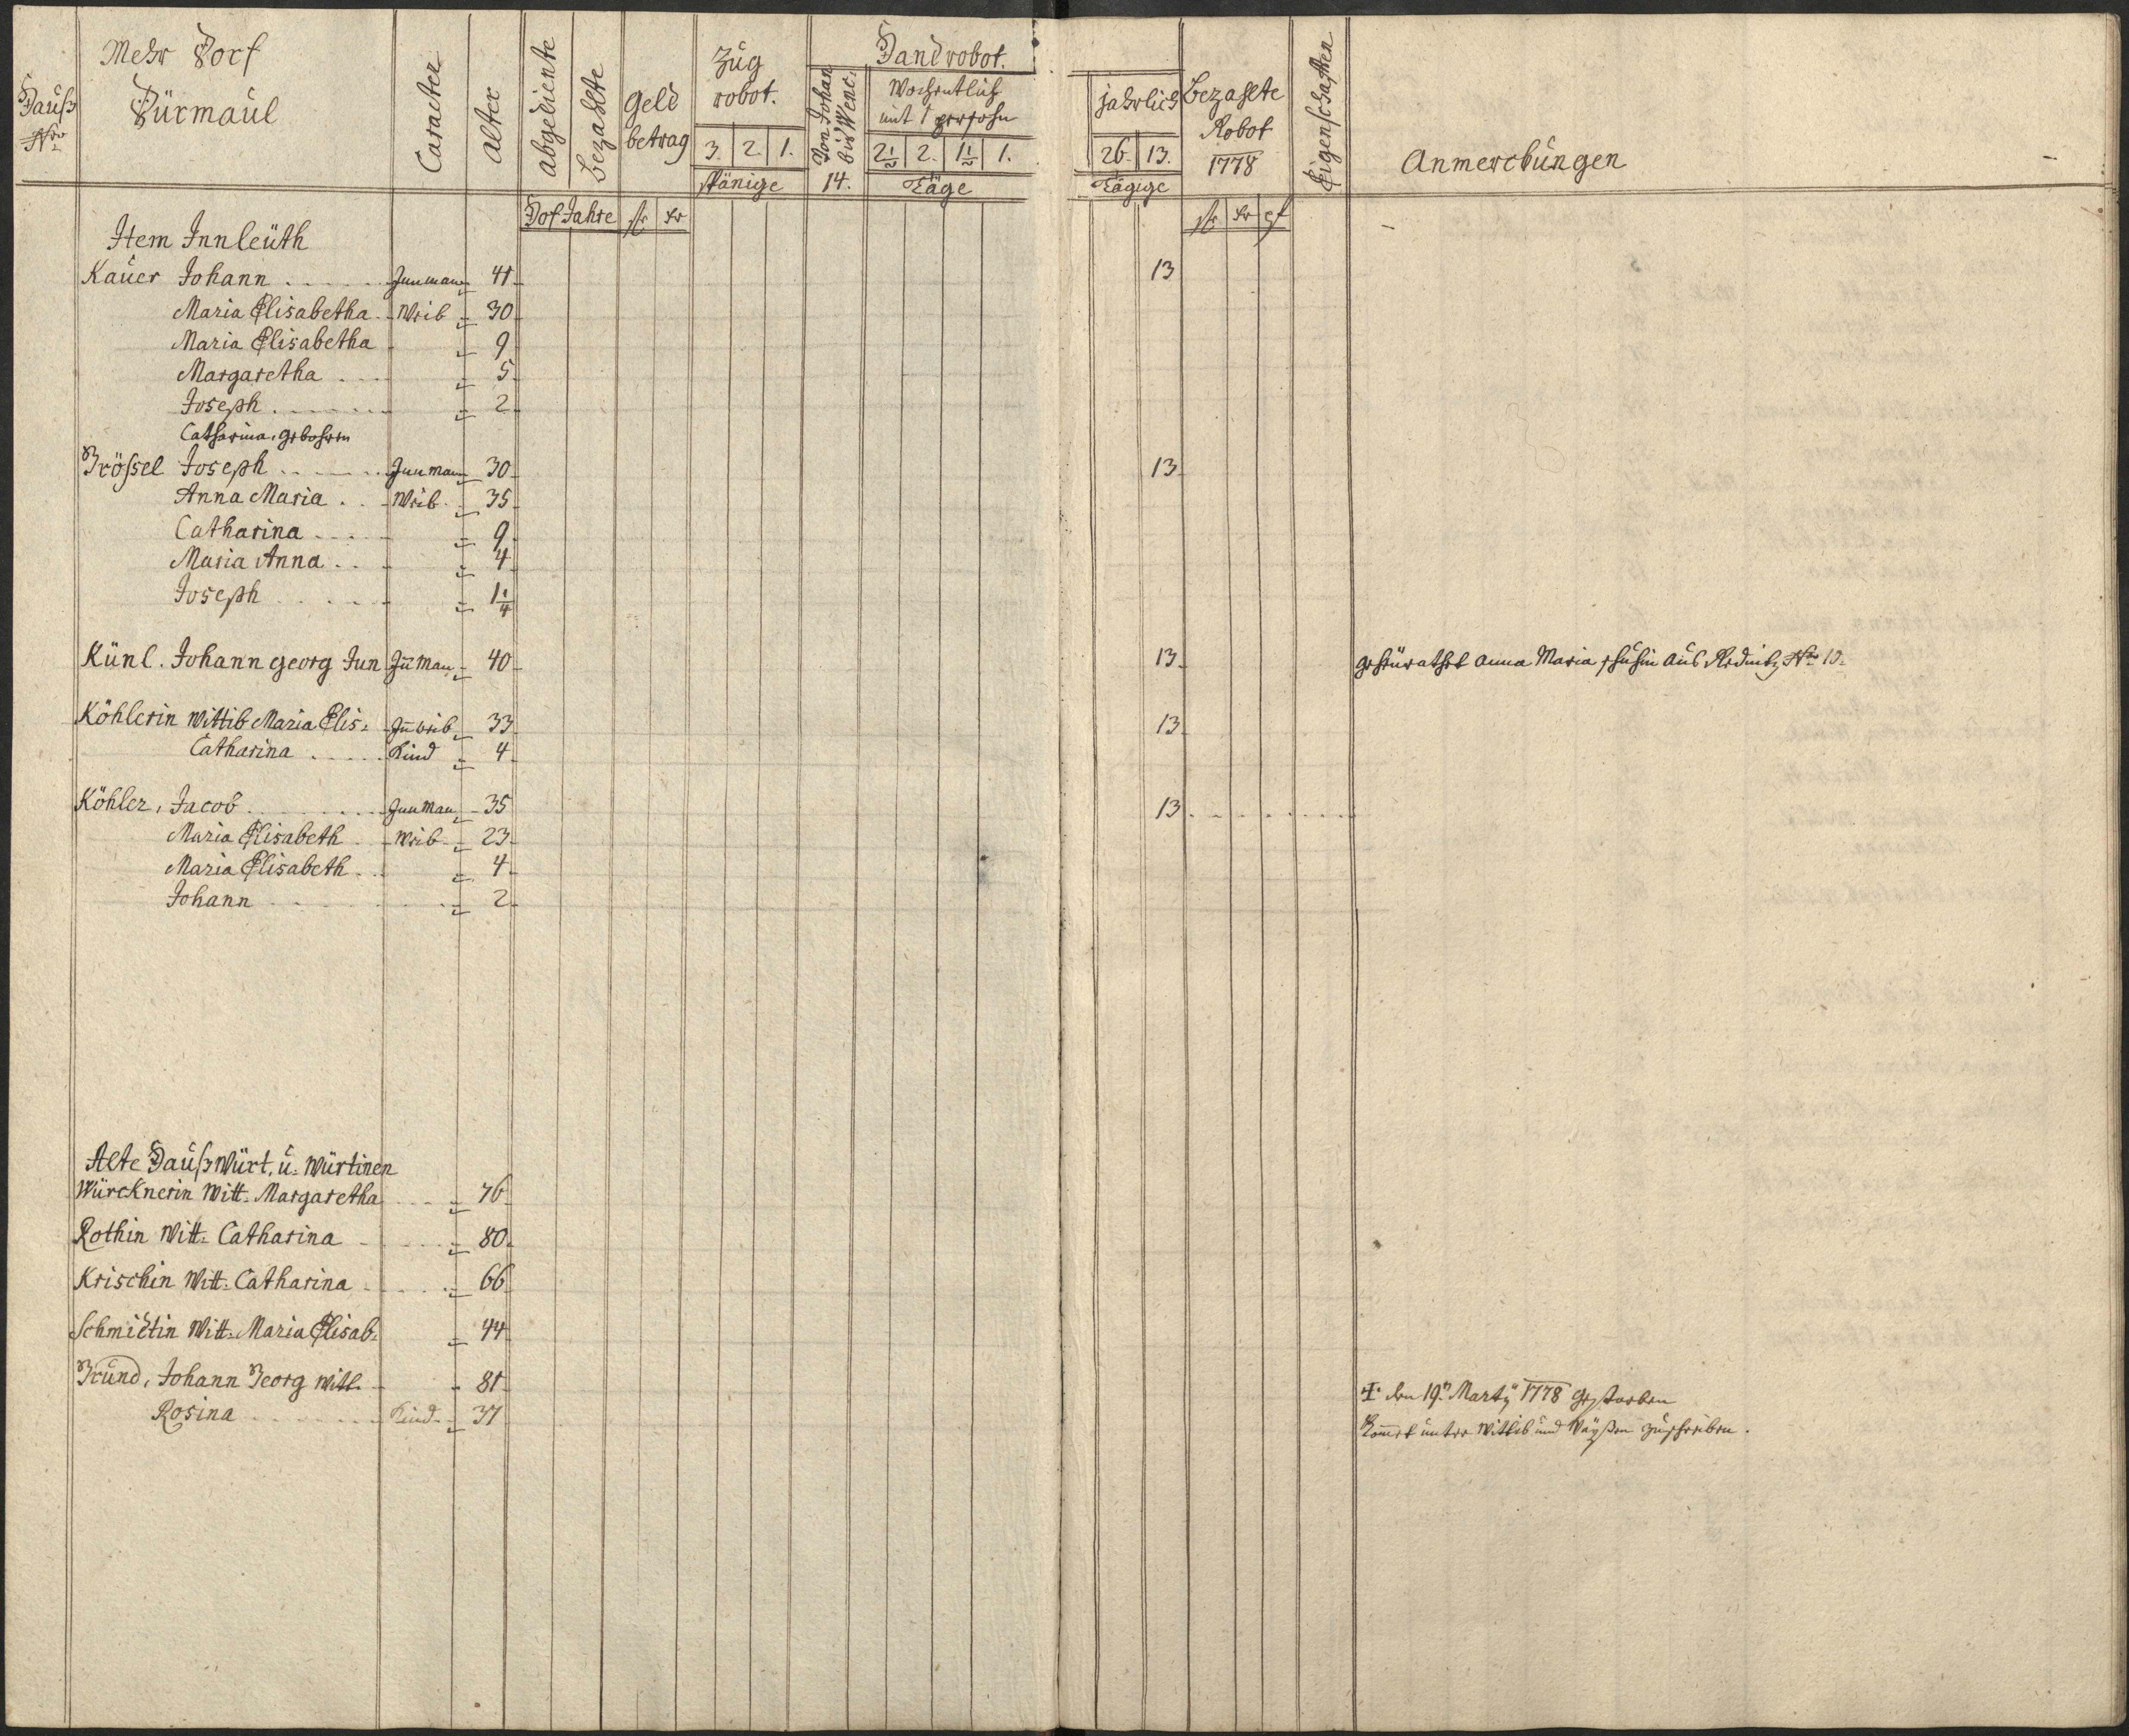 Hauß
Nro
Mehr Dorf
Dürmaul
Caracter
Alter
Abgediente
Bezahlte
Hof Jahre
Geld
betrag
fl kr
Zug
robot.
3. 2. 1.
spänige
Handrobot.
Von Johan
bis Wenc:
14.
Wochentlich
mit 1 persohn
2 1/2 2. 1 1/2 1.
Täge
jahrlich
26. 13.
Tägige
Bezahlte
Robot
1778
fl kr
Eigenschaften
Anmerckungen
Item Innleüth
Kauer Johann Innman 41 13
Maria Elisabetha Weib 30
Maria Elisabetha 9
Margaretha 5
Joseph 2
Catharina, gebohren
Größel Joseph Innman 30 13
Anna Maria Weib 35
Catharina 9
Maria Anna 4
Joseph 1 1/4
Künl. Johann georg Jun Iñman 40 13 geheürathet Anna Maria aus Rednitz Nro
Köhlerin Wittib Maria Elis: Iñweib 33 13
Catharina Kind 4
Köhler, Jacob Innman 35 13
Maria Elisabeth Weib 23
Maria Elisabeth 4
Johann 2
Alte Haußwürt, u: Würtinen
Würcknerin Witt: Margaretha 76
Rothin Witt: Catharina 80
Krischin Witt: Catharina 66
Schmidtin Witt: Maria Elisab: 44
Grund, Johann Georg Witt. 81 den 19t Marty 1778 gestorben
Rosina Kind 37 Kom̄et unter Wittib und Waysen zuschreiben.